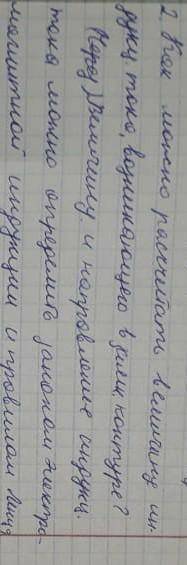 2. Как можно рассчитать величину ин-
дукц. тока, возникающего в цепи контуре?
(перед) Величину и направление индукц.
тока можно определить законом электро-
магнитной индукции и правилом Ленца